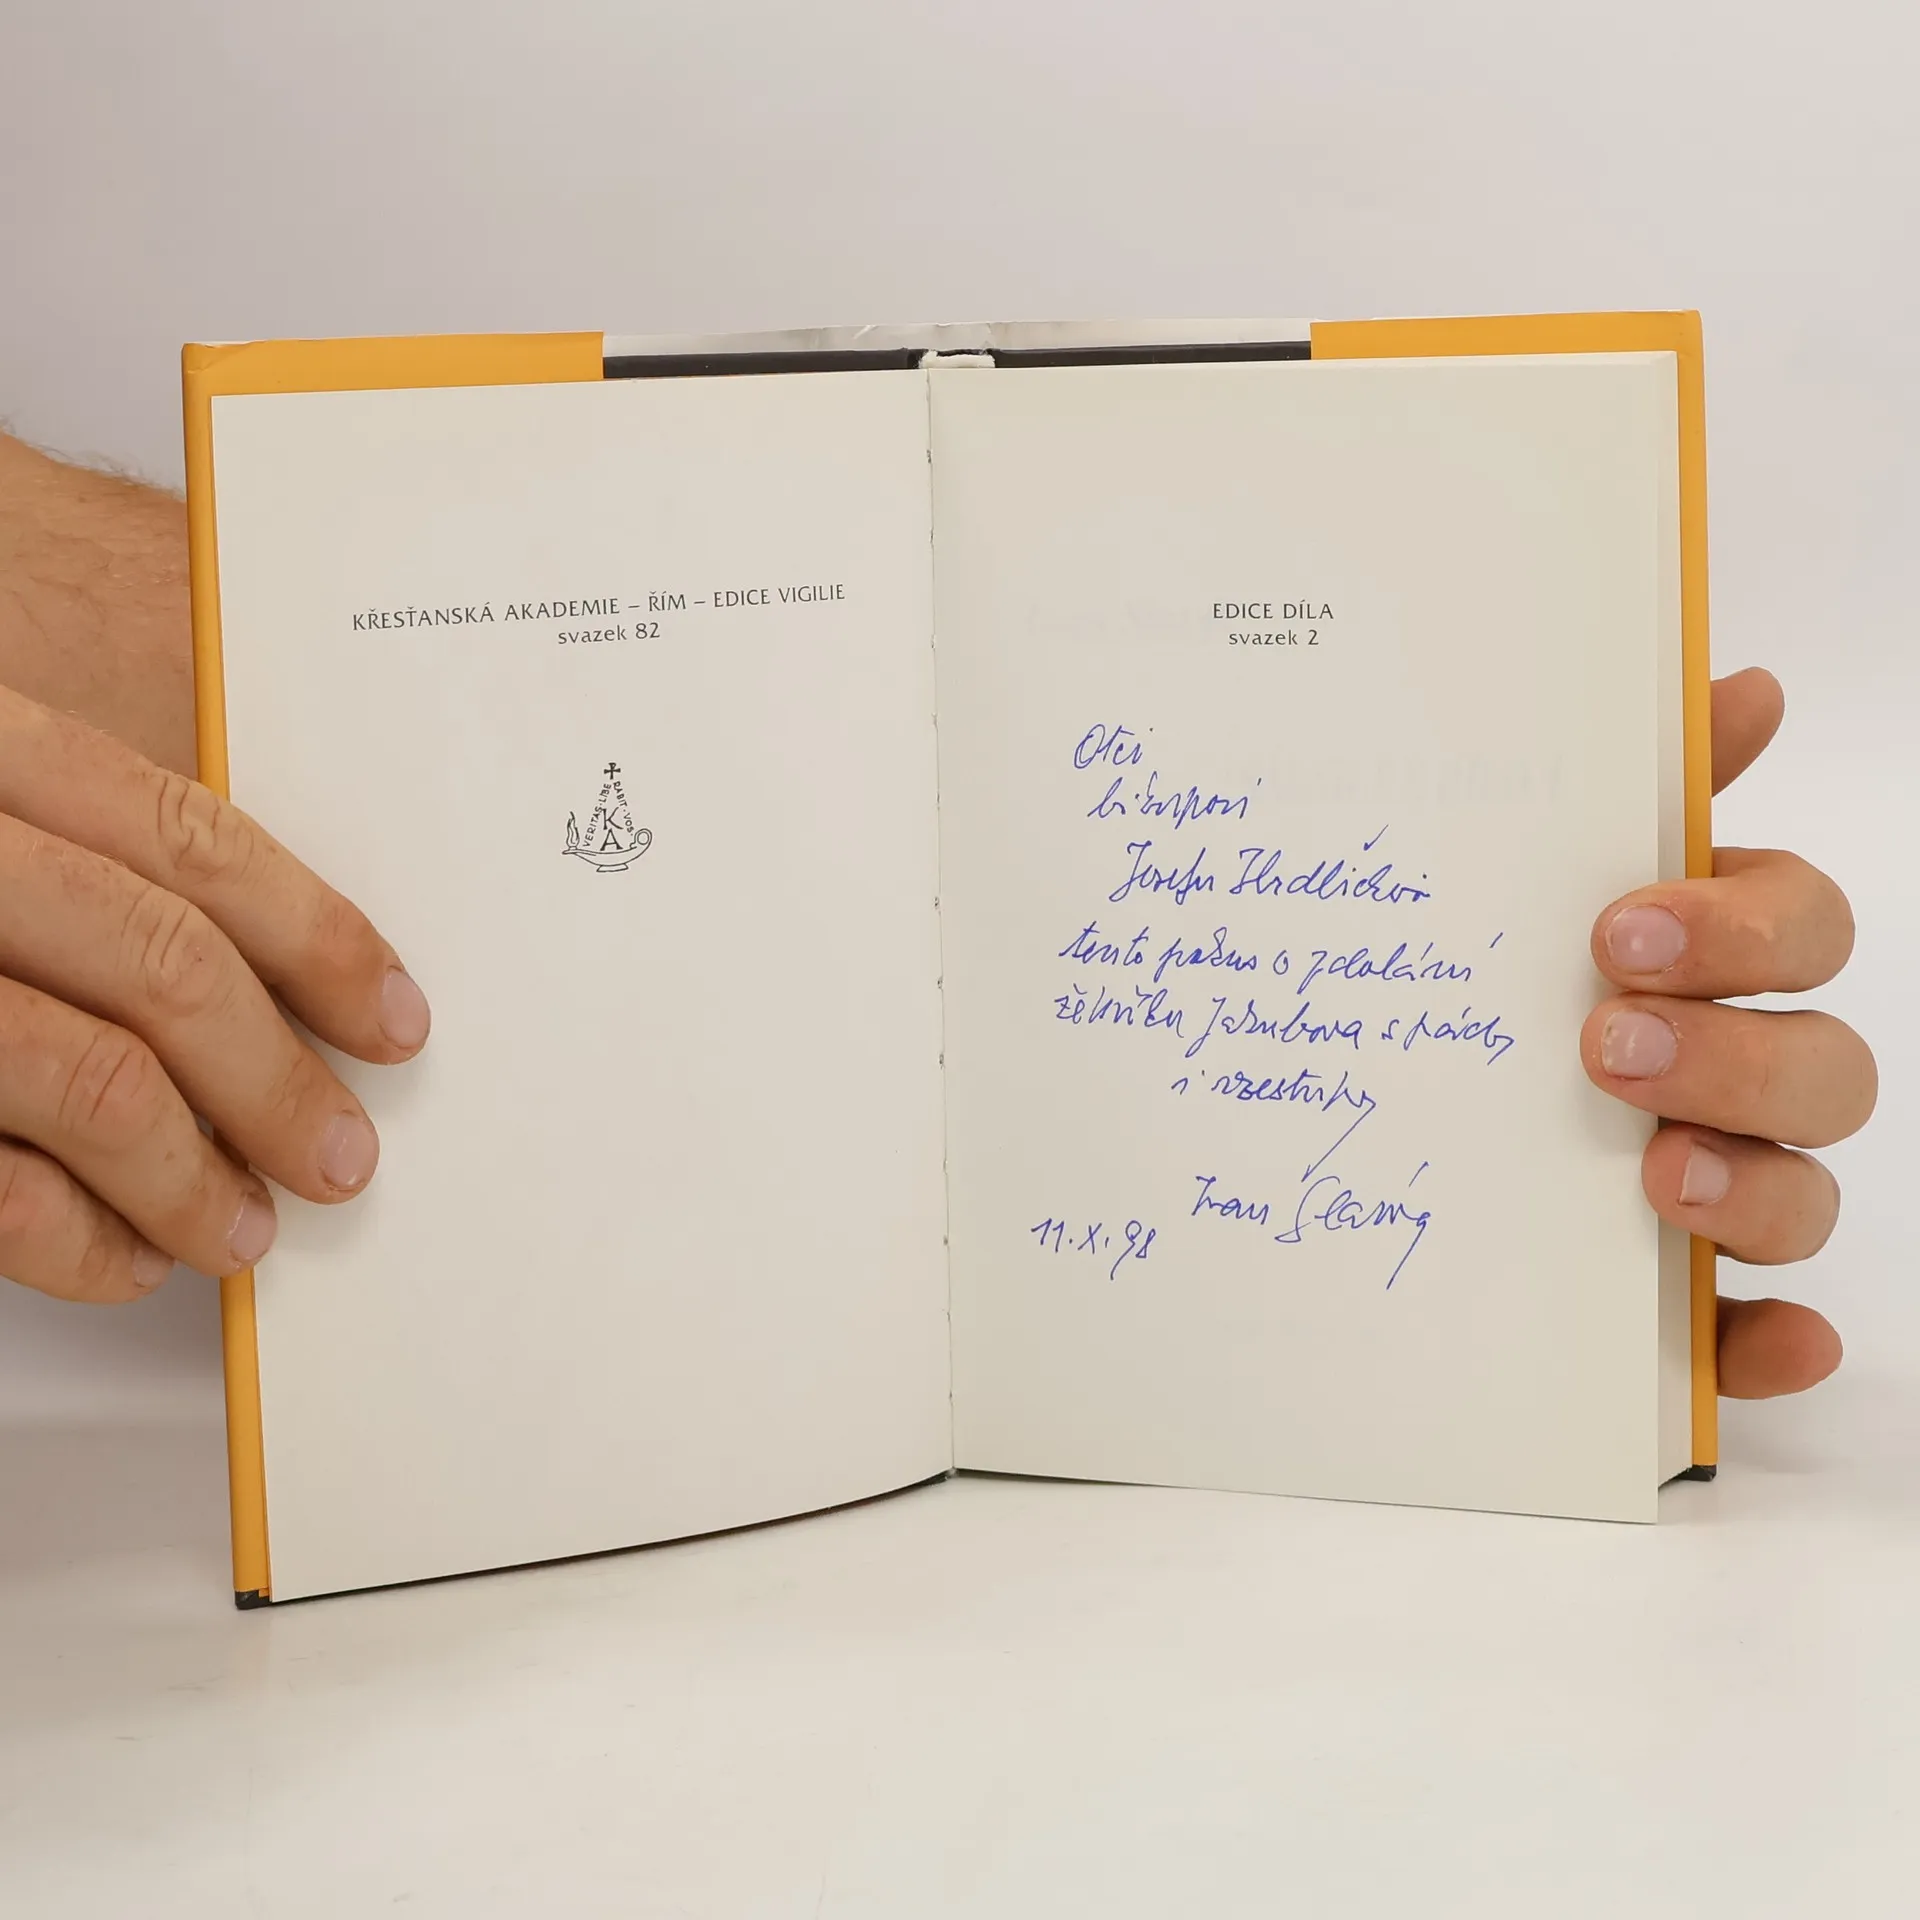 KŘESŤANSKÁ AKADEMIE – ŘÍM – EDICE VIGILIE
svazek 82
VERITAS · LIBE RABIT · VOS ·
K
A
EDICE DÍLA
svazek 2
Otci
biskupovi
Josefu Hrdličkovi
tento pokus o zdolání
žebříku Jakubova s pády
i vzestupy
Ivan Slavík
11. X. 98